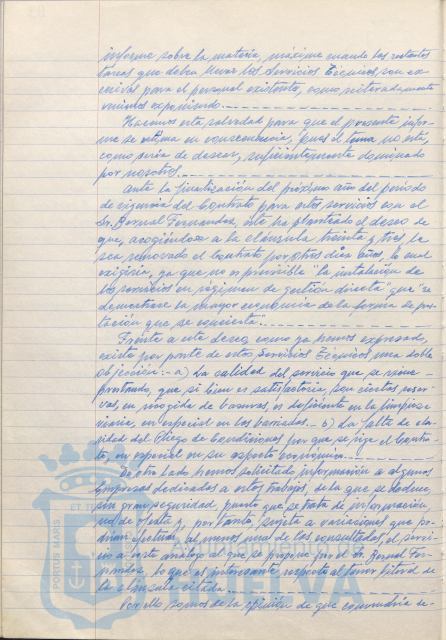 informe sobre la materia, máxime cuando las restantes
tareas que deben llevar los Servicios Técnicos, son ex-
cesivas para el personal existente, como reiteradamente
venimos exponiendo.
Hacemos esta salvedad para que el presente infor-
me se estima en consecuencia, pues el tema no está,
como sería de desear, suficientemente dominado
por nosotros.
Ante la finalización del próximo año del período
de vigencia del Contrato para estos servicios con el
Sr. Bernal Fernández, éste ha planteado el deseo de
que, acogiéndose a la cláusula treinta y tres le
sea renovado el Contrato por otros diez años, lo cual
exigiría, ya que no es previsible "la instalación de
los servicios en régimen de gestión directa" que "se
demostrase la mayor economía de la forma de pres-
tación que se concierte".
Frente a este deseo, como ya hemos expresado,
existe por parte de estos Servicios Técnicos una doble
objección: - a) La calidad del servicio que se viene
prestando, que si bien es satisfactoria, con ciertas reser-
vas, en recogida de basuras, es deficiente en la limpieza
viaria, en especial en las barriadas. - b) La falta de cla-
ridad del Pliego de Condiciones por que se rige el Contra-
to, en especial en su aspecto económico.
De otro lado hemos solicitado información a algunas
Empresas dedicadas a estos trabajos, de la que se deduce,
sin gran seguridad, puesto que se trata de información,
no de oferta y, por tanto, sujeta a variaciones que po-
drían efectuar, al menos una de las consultadas el servi-
cio a costo análogo al que se propone por el Sr. Bernal Fer-
nández, lo que es interesante respecto al tenor literal de
la cláusula citada.
Por ello somos de la opinión de que convendría se-
PORTUS MARIS
ET TE
HUELVA